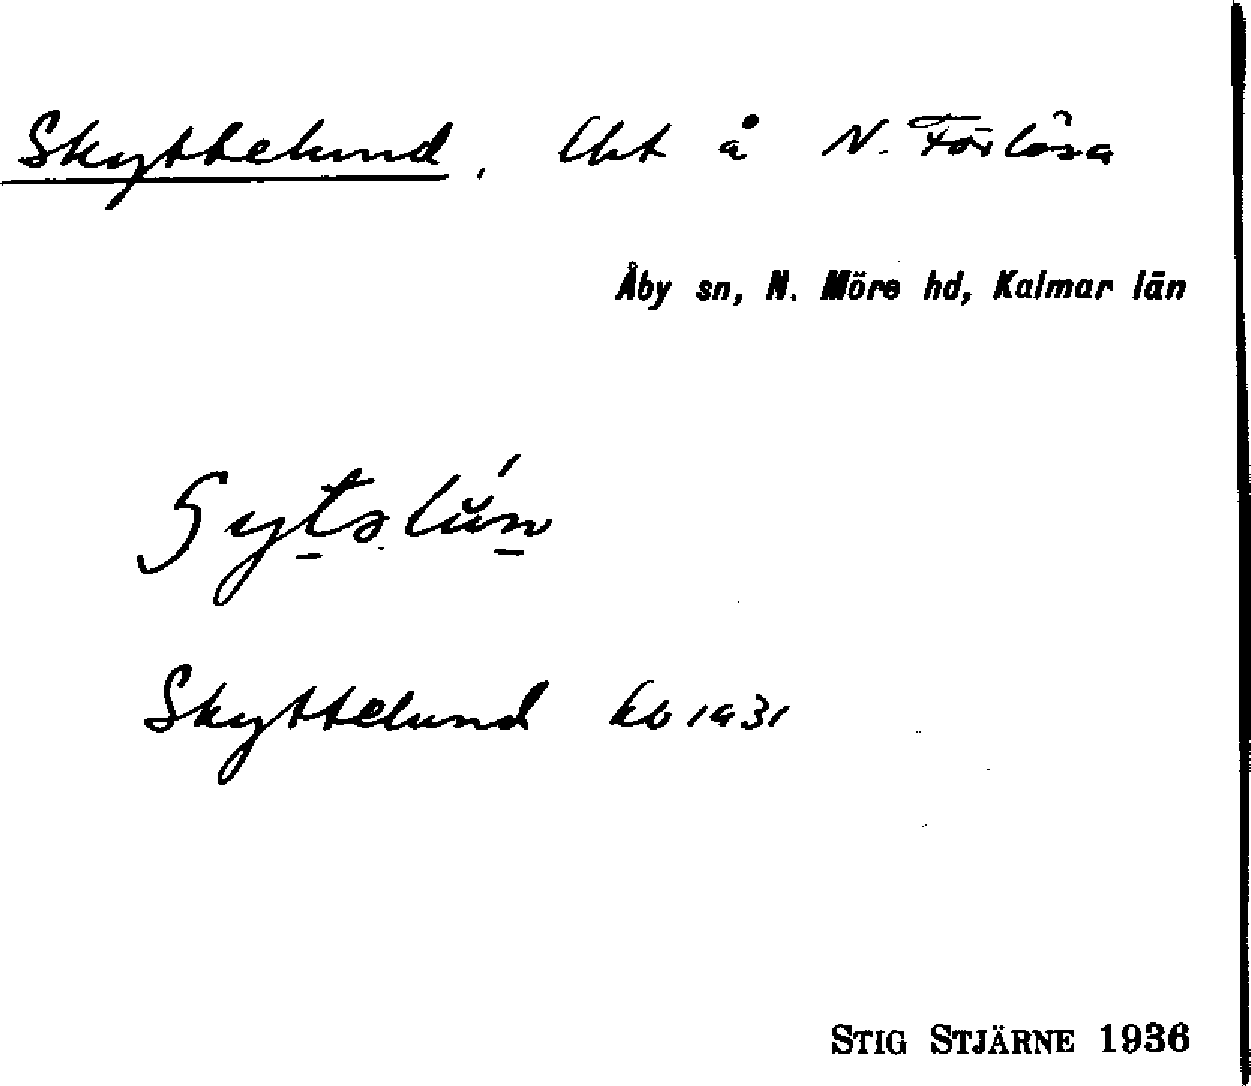 Skyttelund, lht å N. Förlösa
Åby sn, N. Möre hd, Kalmar län
Skyttelund kb 1931
STIG STJÄRNE 1936